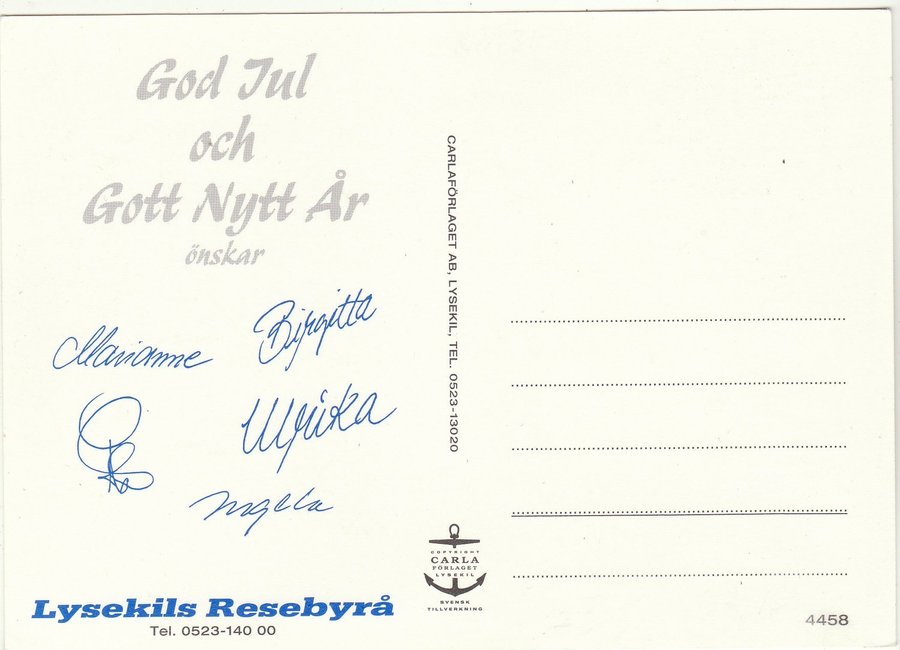 God Jul
och
Gott Nytt År
önskar
Birgitta
Marianne
Ulrika
Ingela
Lysekils Resebyrå
Tel. 0523-140 00
CARLAFÖRLAGET AB, LYSEKIL, TEL. 0523-13020
COPYRIGHT
CARLA
FÖRLAGET
LYSEKIL
SVENSK
TILLVERKNING
4458